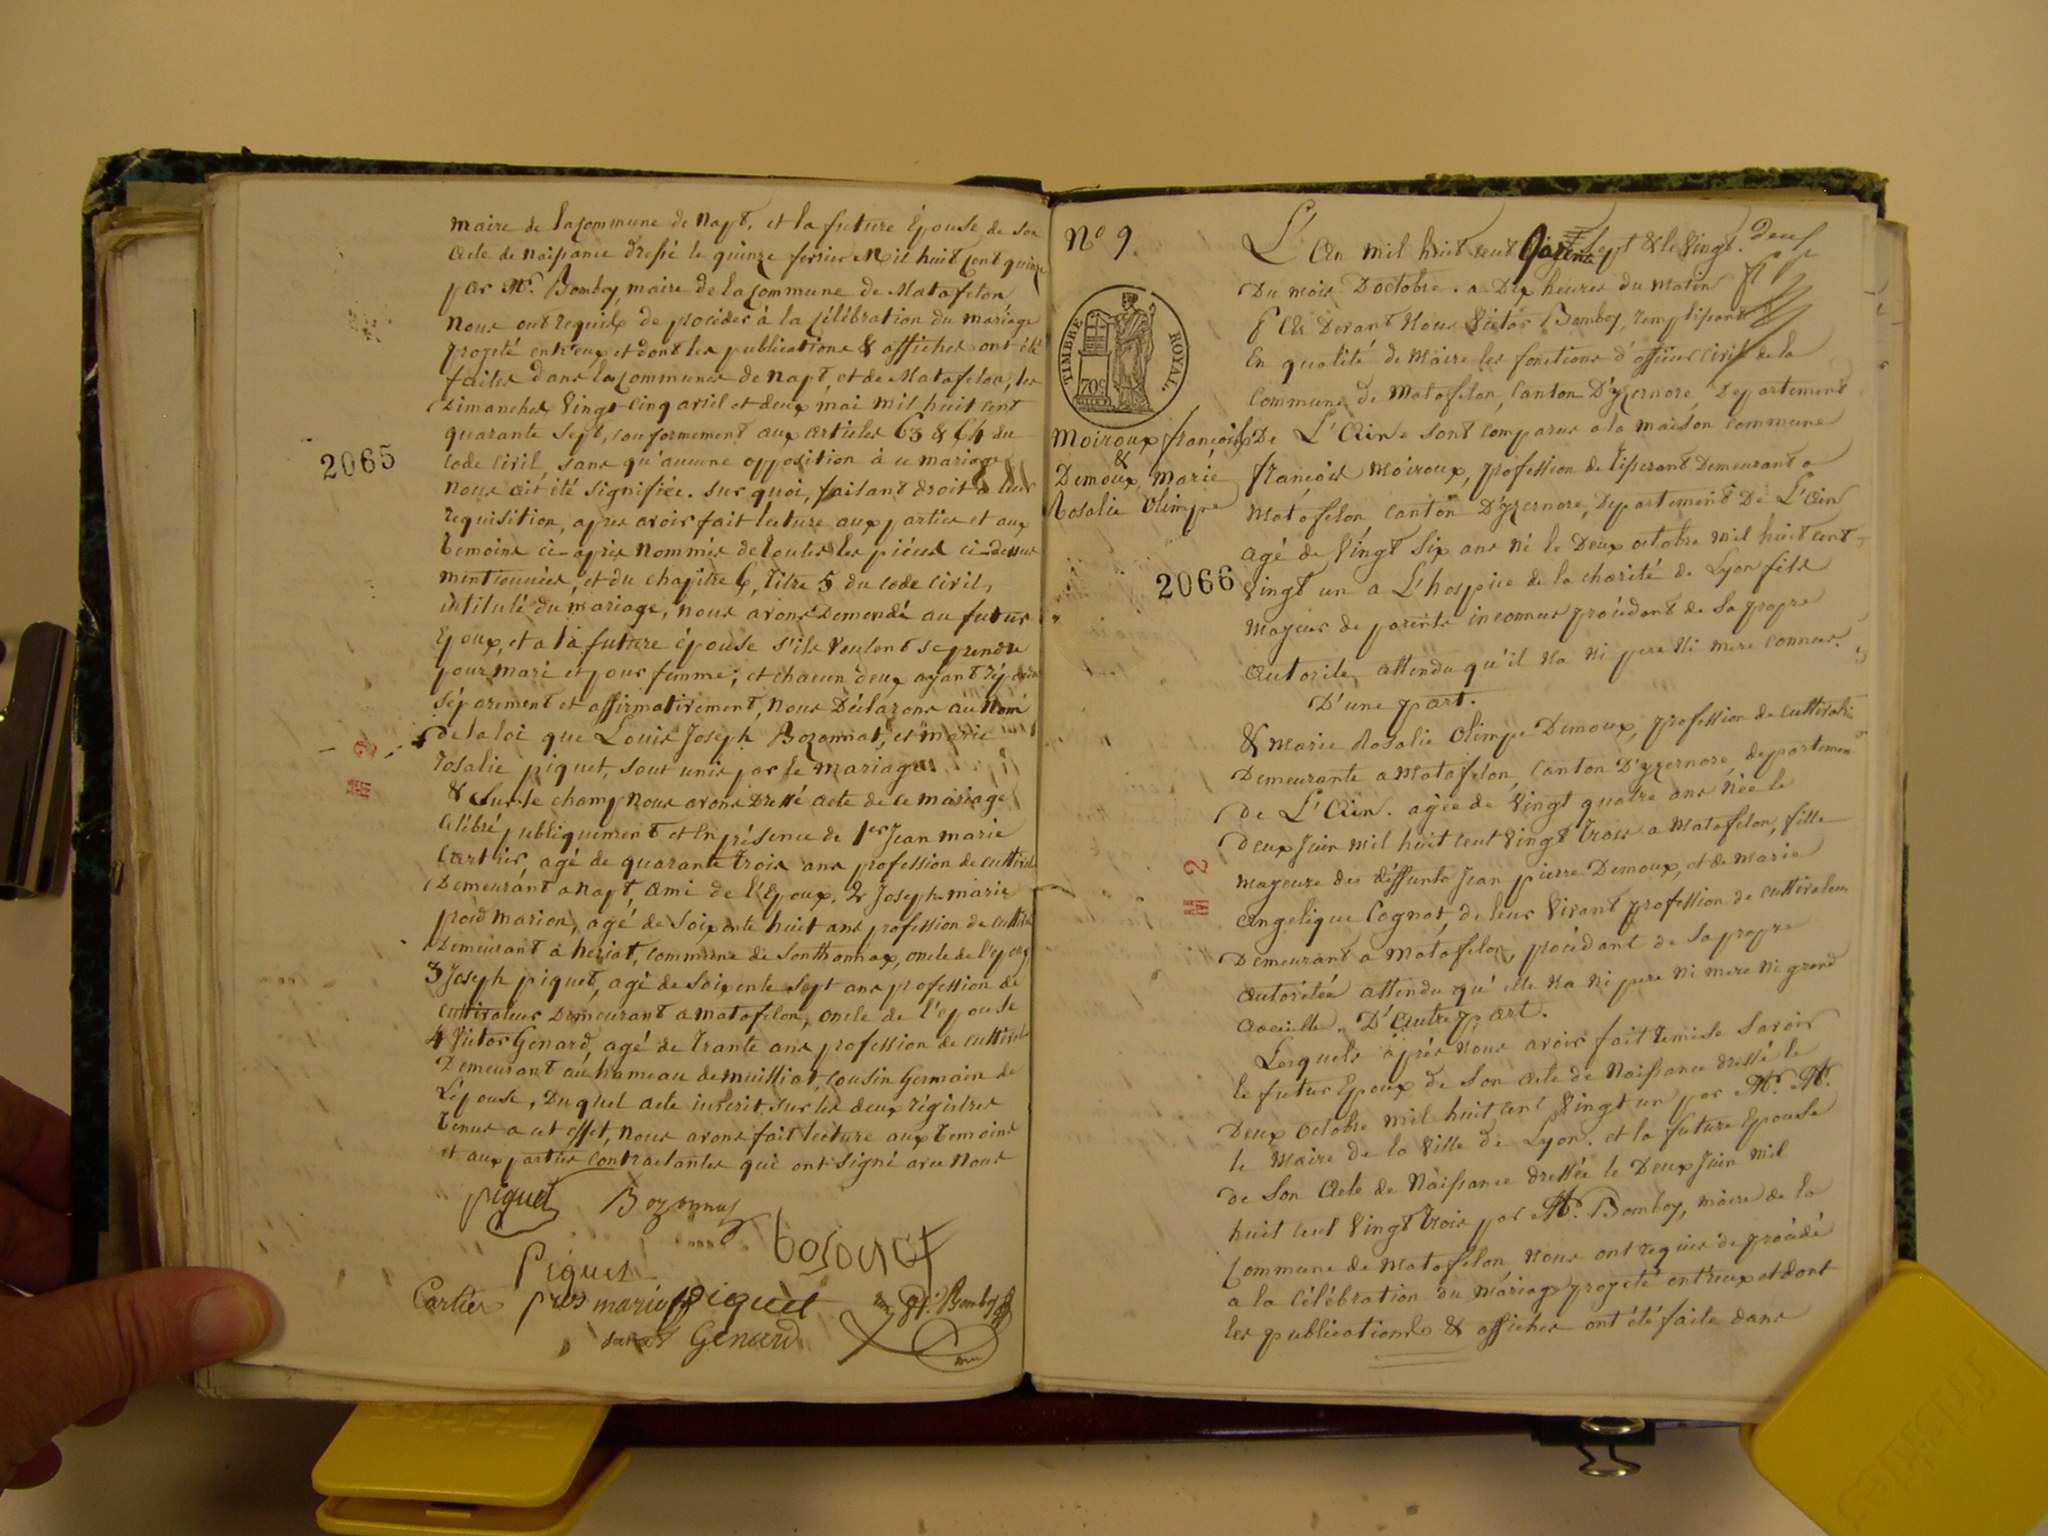 maire de la commune de napt, et la future Epouse de son
acte de naissance dressé le quinze fevrier mil huit cent quinze
par Mr. Bomboy, maire de la commune de Matafelon
nous ont requis de procéder à la célébration du mariage
projeté entr'eux et dont les publications & affiches ont été
faites dans les communes de napt, et de Matafelon, les
Dimanches vingt-cinq avril et deux mai mil huit cent
quarante sept, conformement aux articles 63 & 64 du
code civil, sans qu'aucune opposition à ce mariage
nous ait été signifiée. sur quoi, faisant droit à leur
requisition, apres avoir fait lecture aux parties et aux
temoins ci-après nommés de toutes les pièces ci-dessus
mentionnées, et du chapitre 6, titre 5 du code civil,
intitulé du mariage, nous avons demandé au futur
Epoux, et a la future épouse s'ils veulent se prendre
pour mari et pour femme; et chacun d'eux ayant répondu
séparement et affirmativement, nous Déclarons au nom
de la loi que Louis Joseph Bozonnat, et marie
rosalie piquet, sont unis par le mariage.
& sur le champ nous avons dressé acte de ce mariage
célébré publiquement et en présence de 1er Jean marie
Cartier, agé de quarante trois ans profession de cultivat
Demeurant a napt, ami de l'époux, 2 Joseph marie
prost marion, agé de soixante huit ans profession de cultiv
Demeurant à heriat, commune de Sonthonnax, oncle de l'epoux
3 Joseph piquet, agé de soixante sept ans profession de
cultivateur Demeurant a matafelon, oncle de l'epouse
4 Victor Génard, agé de trante ans profession de cultivat
Demeurant au hameau de muissiat, cousin Germain de
L'épouse, Duquel acte inscrit sur les deux régistres
tenus a cet effet, nous avons fait lecture aux temoins
et aux parties contractantes qui ont signé avec nous
piquet Bozonnat
bosonat
Piquet
Cartier marion piquet Bomboy
Génard
2065
M 3
No 9.
TIMBRE ROYAL
70c
Moiroux françois
&
Demoux, marie
Rosalie Olimpe
2066
M 2
L'an mil huit cent quarante sept & le vingt deux
Du mois Doctobre. a Dix heures du matin
Par Devant Nous Victor Bomboy, remplissant
En qualité de Maire les fonctions d'officier civil de la
Commune de Matafelon, Canton D'yzernore, Departement
De L'Ain. sont comparus a la maison commune
françois Moiroux, profession de tisserant Demeurant a
Matafelon, canton D'yzernore, Departement De L'Ain
agé de vingt six ans né le Deux octobre mil huit cent
vingt un a L'hospice de la charité de Lyon fils
majeur de parents inconnus procédant de sa propre
autorite, attendu qu'il na ni pere ni mere connus.
D'une part.
& Marie Rosalie Olimpe Demoux, profession de cultivatri
Demeurante a Matafelon, Canton D'yzernore, departemen
de L'Ain. agée de vingt quatre ans née le
deux Juin mil huit cent vingt trois a Matafelon, fille
mayeure des déffunts Jean pierre Demoux, et de Marie
angelique Cognat, de leur vivant profession de cultivateurs
Demeurant a Matafelon, procédant de sa propre
autoritée attendu qu'elle na ni pere ni mere ni grand
aoeuille. D'Autre part.
Lesquels après nous avoir fait remise savoir
le futur Epoux de son acte de Naissance dressé le
Deux octobre mil huit cent vingt un par Mr. Mr.
le Maire de la ville de Lyon. et la future Epouse
de son acte de Naissance dressée le Deux Juin mil
huit cent vingt trois par Mr. Bomboy, maire de la
Commune de Matafelon nous ont requis de procédé
a la célébration du mariage projeté entr'eux et dont
les publications & affiches ont été faite dans